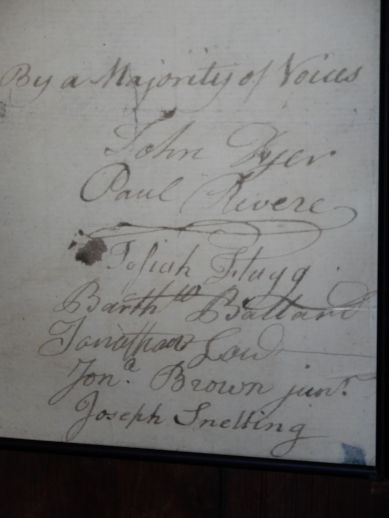 By a Majority of Voices
John Dyer
Paul Rivere
Josiah Flagg
Barth^w Ballard
Jonathan Low
Jon.^a Brown jun^r.
Joseph Snelling